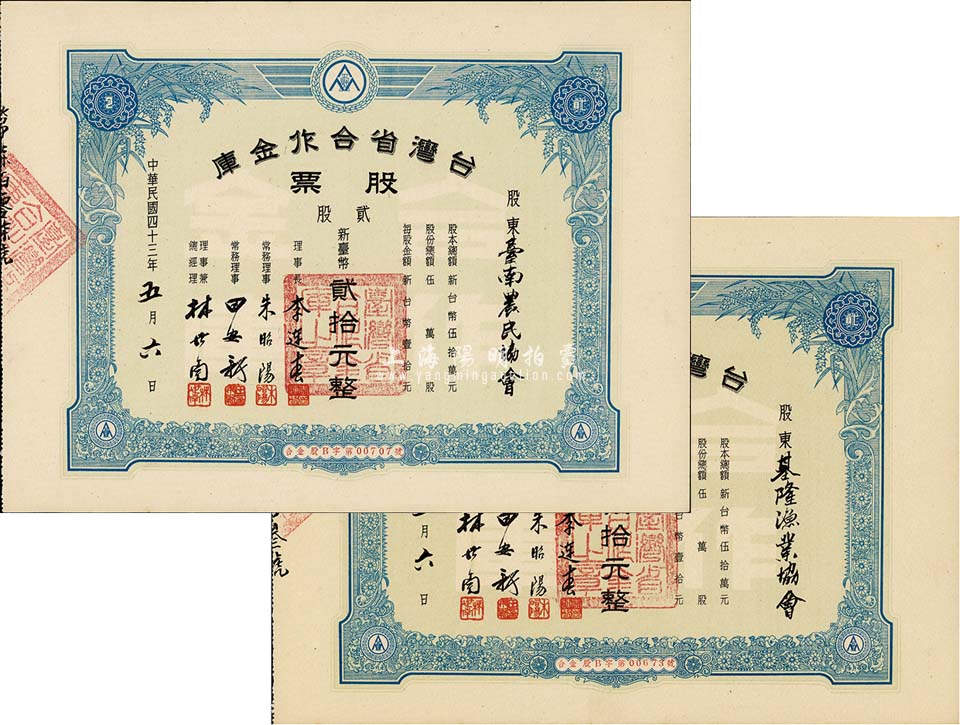 台灣省合作金庫
股票
貳股
新臺幣貳拾元整
股東臺南農民協會
股本總額新台幣伍拾萬元
股份總額伍萬股
每股金額新台幣壹拾元
理事長李連春
常務理事朱昭陽
常務理事
理事兼總經理
中華民國四十三年五月六日
合金股B字第00707號
貳
上海陽明拍賣
www.yangmingauction.com
台灣
股東基隆漁業協會
股本總額新台幣伍拾萬元
股份總額伍萬股
台幣壹拾元
拾元整
李連春
朱昭陽
月六日
合金股B字第00673號
貳